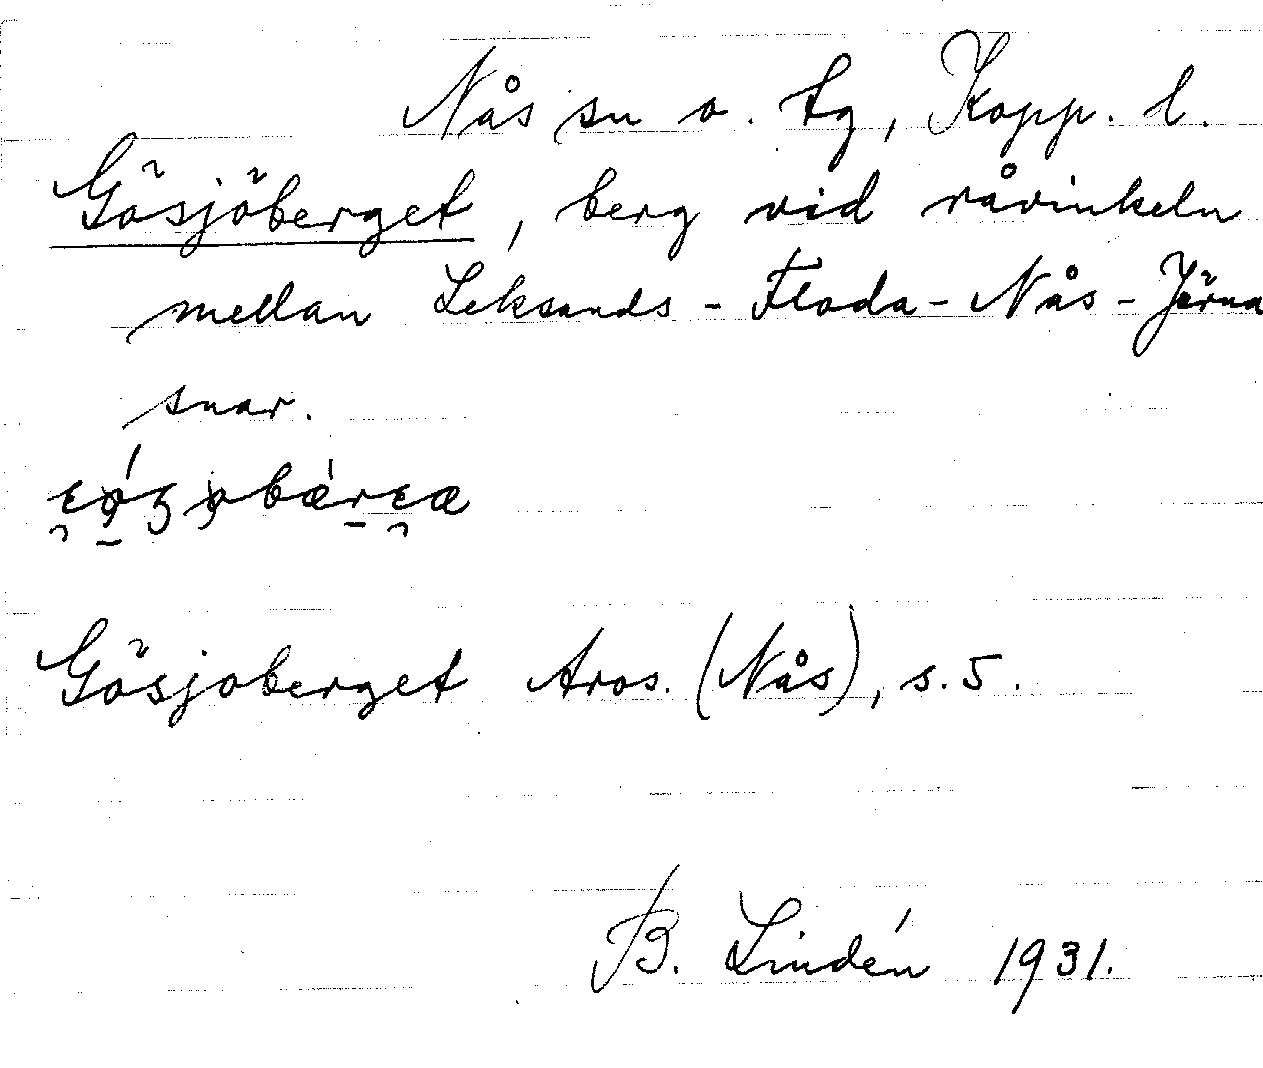 Nås sn o. tg, Kopp. l.
Gösjöberget, berg vid råvinkeln
mellan Leksands - Floda - Nås - Järna
snar.
Gösjoberget Aros. (Nås), s. 5.
B. Lindén 1931.